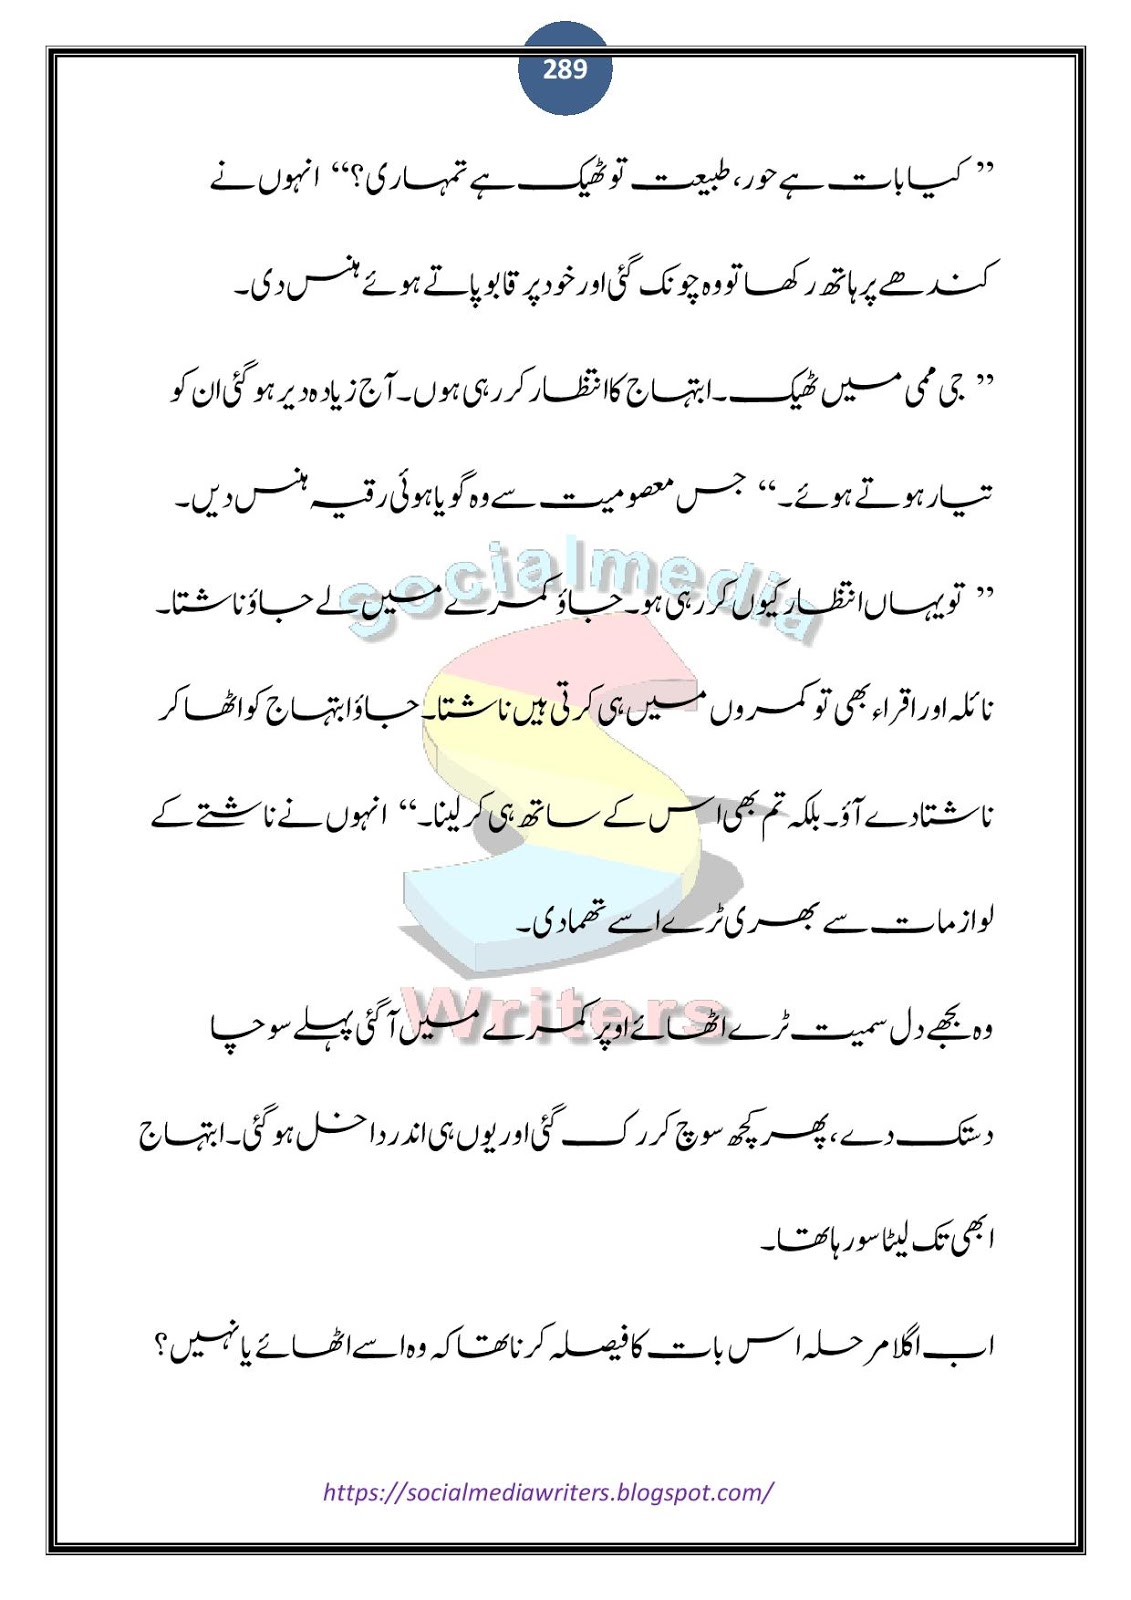 289
” کیا بات ہے حور، طبیعت تو ٹھیک ہے تمہاری؟“ انہوں نے
کندھے پر ہاتھ رکھا تو وہ چونک گئی اور خود پر قابو پاتے ہوئے ہنس دی۔
” جی ممی میں ٹھیک۔۔ ابتہاج کا انتظار کر رہی ہوں۔ آج زیادہ دیر ہو گئی ان کو
تیار ہوتے ہوئے۔“ جس معصومیت سے وہ گویا ہوئی رقیہ ہنس دیں۔
” تو یہاں انتظار کیوں کر رہی ہو۔ جاؤ کمرے میں لے جاؤ ناشتا۔
نائلہ اور اقراء بھی تو کمروں میں ہی کرتی ہیں ناشتا۔ جاؤ ابتہاج کو اٹھا کر
ناشتا دے آؤ۔ بلکہ تم بھی اس کے ساتھ ہی کر لینا۔“ انہوں نے ناشتے کے
لوازمات سے بھری ٹرے اسے تھما دی۔
وہ بجھے دل سمیت ٹرے اٹھائے اوپر کمرے میں آ گئی پہلے سوچا
دستک دے، پھر کچھ سوچ کر رک گئی اور یوں ہی اندر داخل ہو گئی۔ ابتہاج
ابھی تک لیٹا سو رہا تھا۔
اب اگلا مرحلہ اس بات کا فیصلہ کرنا تھا کہ وہ اسے اٹھائے یا نہیں؟
Socialmedia
Writers
https://socialmediawriters.blogspot.com/